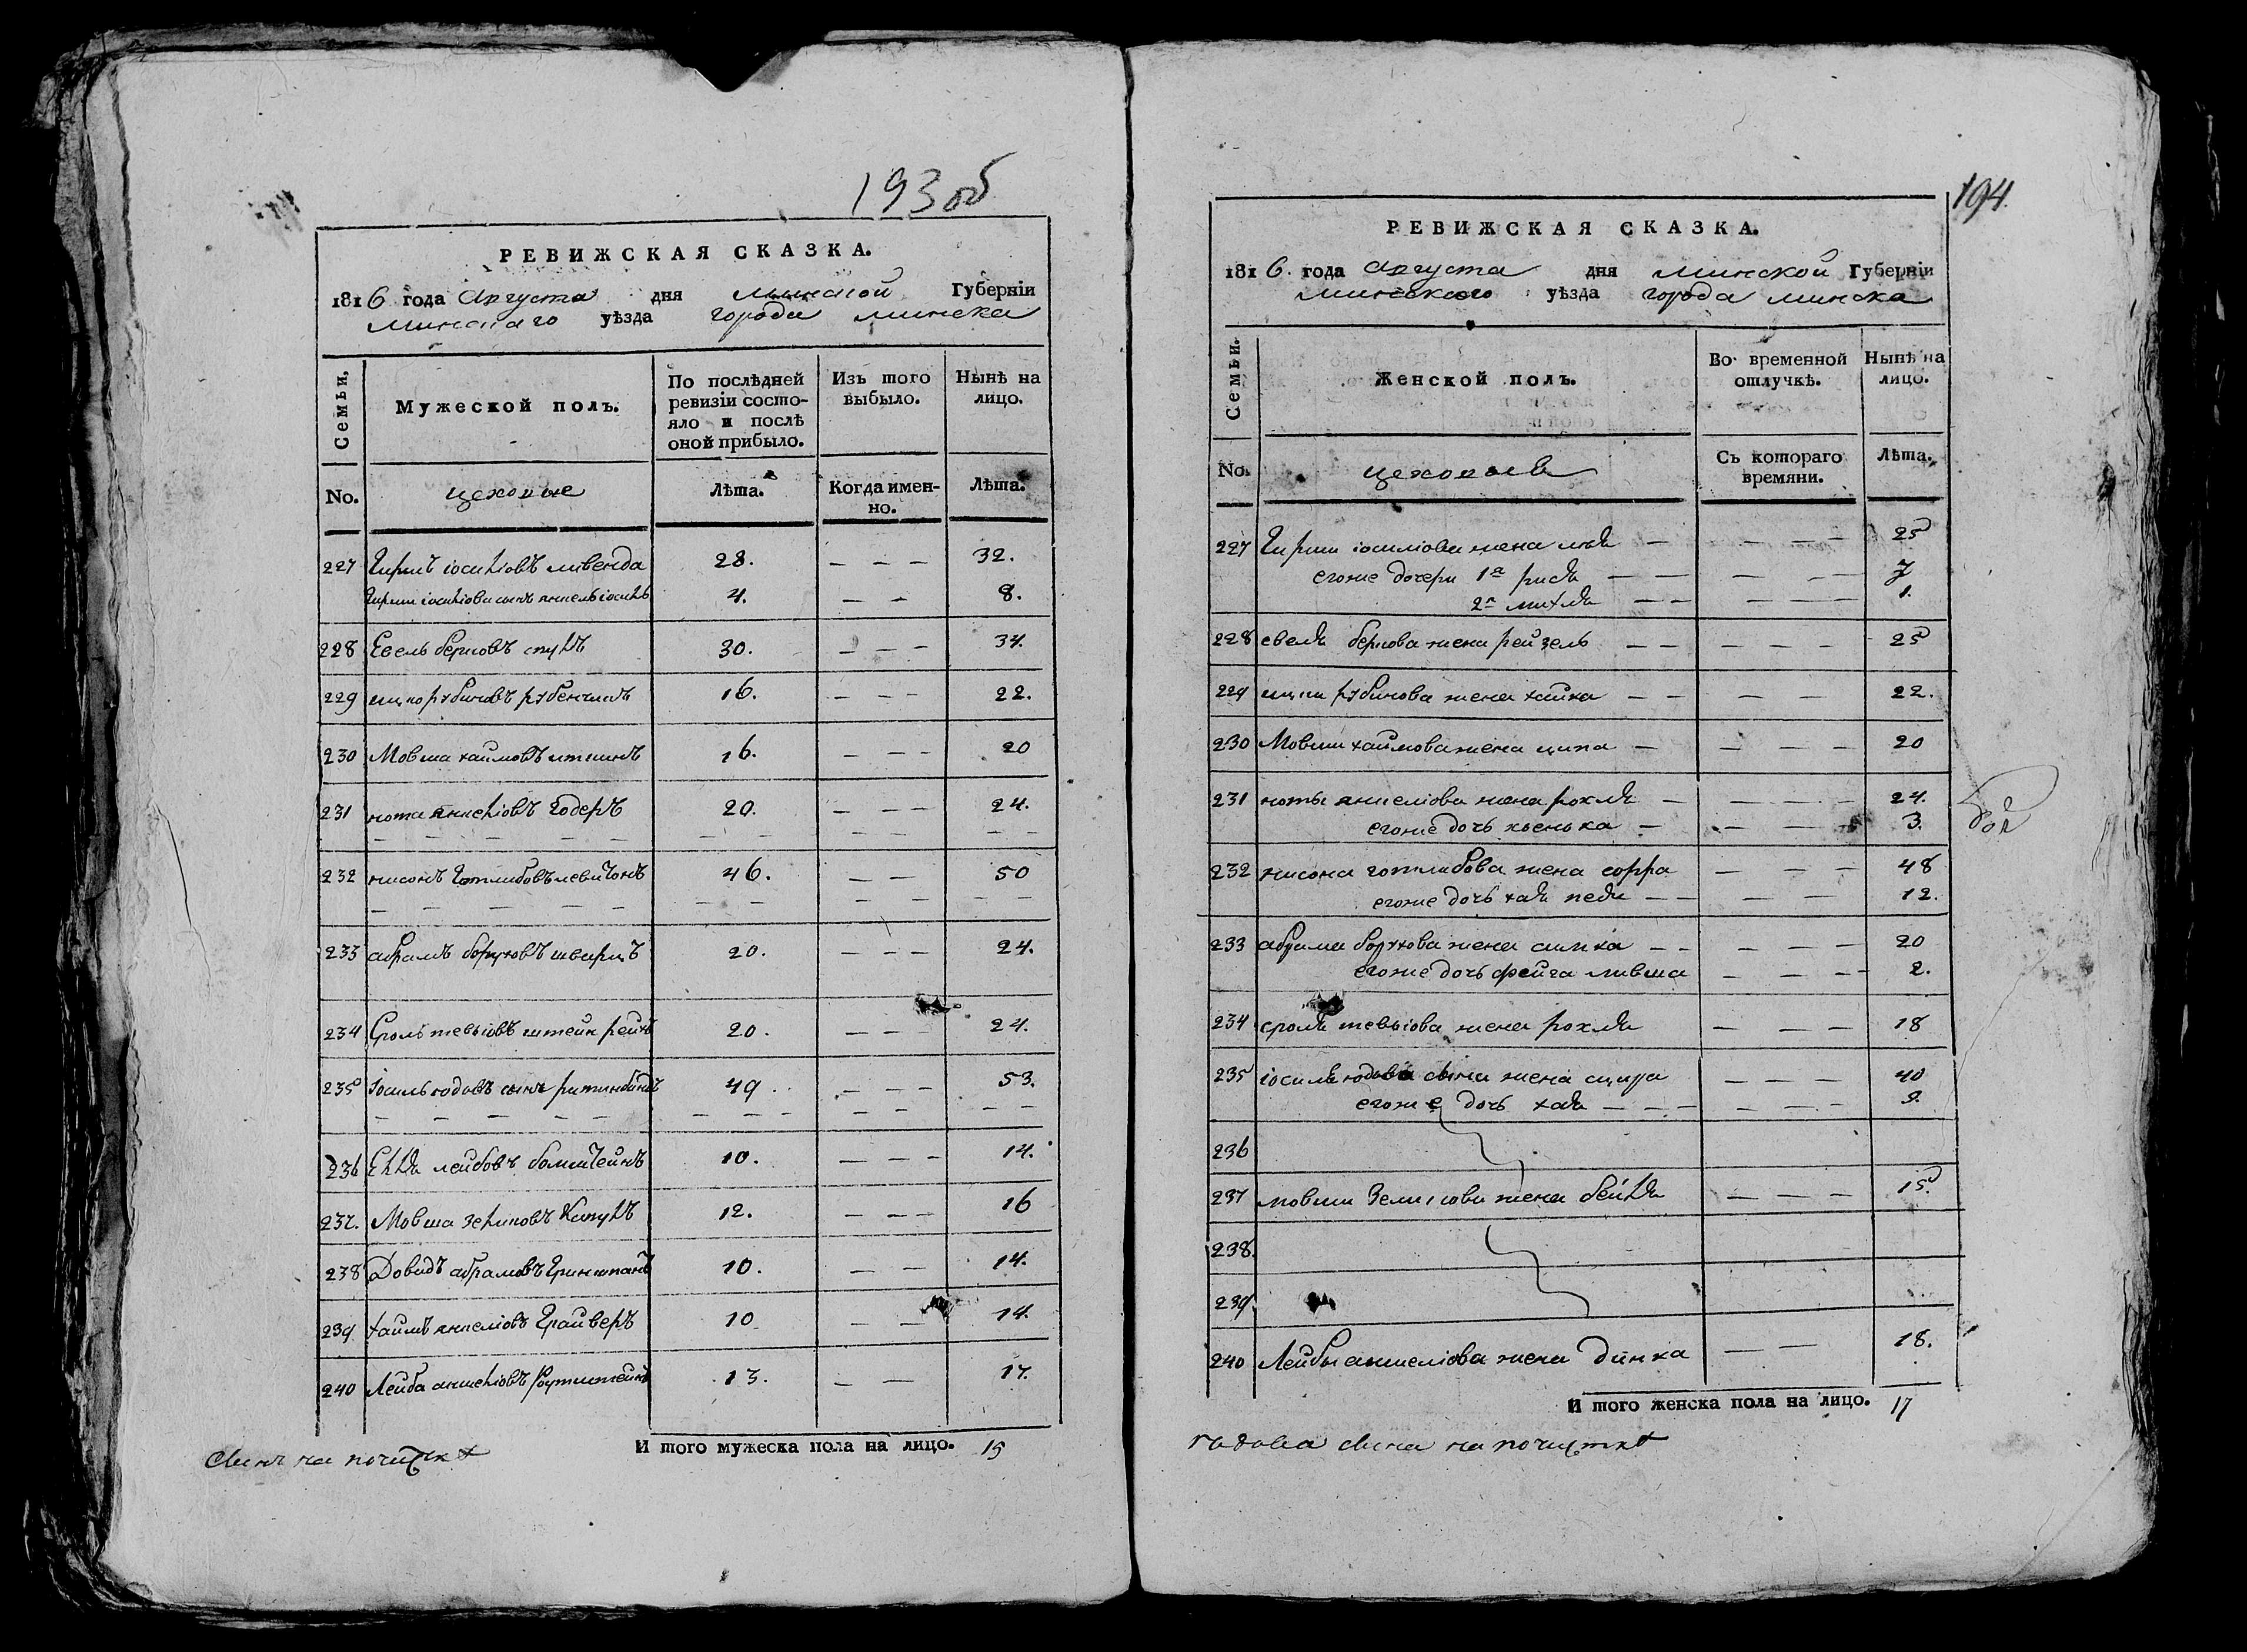 193 об
РЕВИЖСКАЯ СКАЗКА.
1816 года Августа дня Минской Губерніи
Минскаго уѣзда города Минска
Семьи,
Мужеской полъ.
По послѣдней ревизіи состо-
яло и послѣ
оной прибыло.
Изъ того выбыло.
Нынѣ на лицо.
No.
цеховые
Лѣта.
Когда имен-
но.
Лѣта.
227 Гиршъ іосиліовъ ливенда 28. — — — 32.
Гирши іосиліова сынъ аншель іосиль 4. — — 8.
228 Евель берковъ 30. — — — 34.
229 ицко рубиновъ рубенчикъ 16. — — — 22.
230 Мовша хаимовъ 16. — — — 20
231 нота аншеліовъ Годеръ 20. — — — 24.
232 нисонъ Готлибовъ левитонъ 46. — — 50
233 абрамъ боруховъ шварцъ 20. — — — 24.
234 Сроль тевьіовъ штейнрейхъ 20. — — 24.
235 Іосиль юдовъ сынъ 49 — — — 53.
236 лейбовъ 10. — — — 14.
237. Мовша зеликовъ 12. — — — 16
238 Довидъ абрамовъ Гриншпанъ 10. — — 14.
239 хаимъ аншеліовъ Грайверъ 10 — — 14.
240 Лейба аншеліовъ 13. — — 17.
И того мужеска пола на лицо. 15
сынъ на почистке
194.
РЕВИЖСКАЯ СКАЗКА.
1816. года Августа дня Минской Губерніи
Минского уѣзда города Минска
Семьи.
Женской полъ.
Во временной отлучкѣ.
Нынѣ на лицо.
No.
цеховые
Съ котораго времяни.
Лѣта.
227 Гирши іосиліова жена — — — — 25
егоже дочери 1я рися — — — — 7
2я михля — — — — — 1.
228 евеля беркова жена рейзель — — — — — 25
229 ицки рубинова жена хайка — — — — 22.
230 Мовши хаимова жена ципа — — — — 20
231 ноты аншеліова жена рохля — — — — 24.
егоже дочь — — — 3.
232 нисона готлибова жена сорра — — — 48
егоже дочь хая песя — — — — 12.
233 абрама борухова жена симка — — — — — 20
егоже дочь фейга ливша — — — — 2.
234 сроля тевьіова жена рохля — — — 18
235 іосиля юдова сына жена — — — 40
егоже дочь хая — — — — — — 9.
236
237 мовши Зеликова жена бейля — — — 15.
238.
239.
240 Лейбы аншеліова жена динка — — 18.
И того женска пола на лицо. 17
юдова сына на почистке